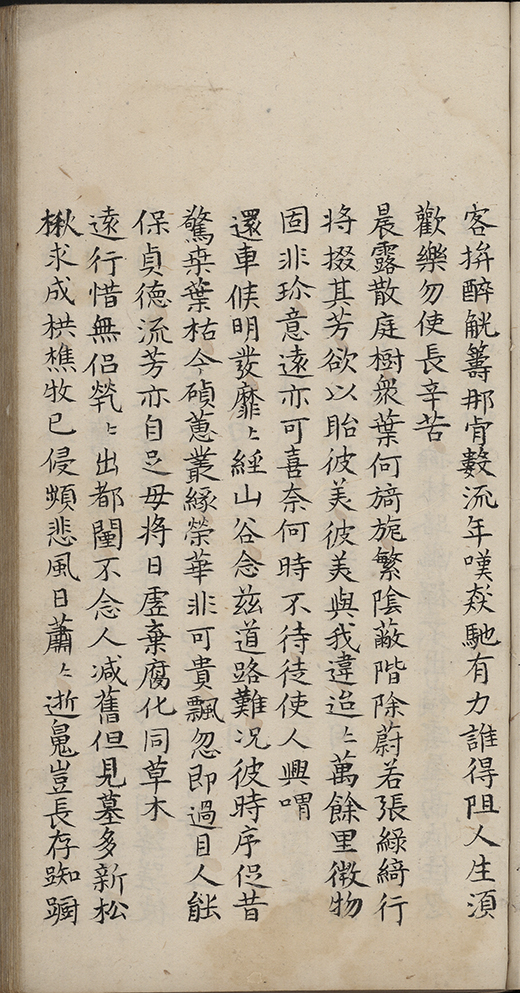 客拚醉觥籌那肯數流年嘆猋馳有力誰得阻人生須
歡樂勿使長辛苦
晨露散庭樹衆葉何旖旎繁陰蔽階除蔚若張綠綺行
將掇其芳欲以貽彼美彼美與我違迢〻萬餘里微物
固非珍意遠亦可喜奈何時不待徒使人興喟
還車候明發靡〻經山谷念茲道路難況彼時序促昔
驚桒葉枯今碩蕙叢綠榮華非可貴飄忽即過目人能
保貞德流芳亦自足毋將日虛棄腐化同草木
遠行惜無侶煢〻出都闉不念人減舊但見墓多新松
楸求成栱樵牧已侵頻悲風日蕭〻逝䰟豈長存踟躕